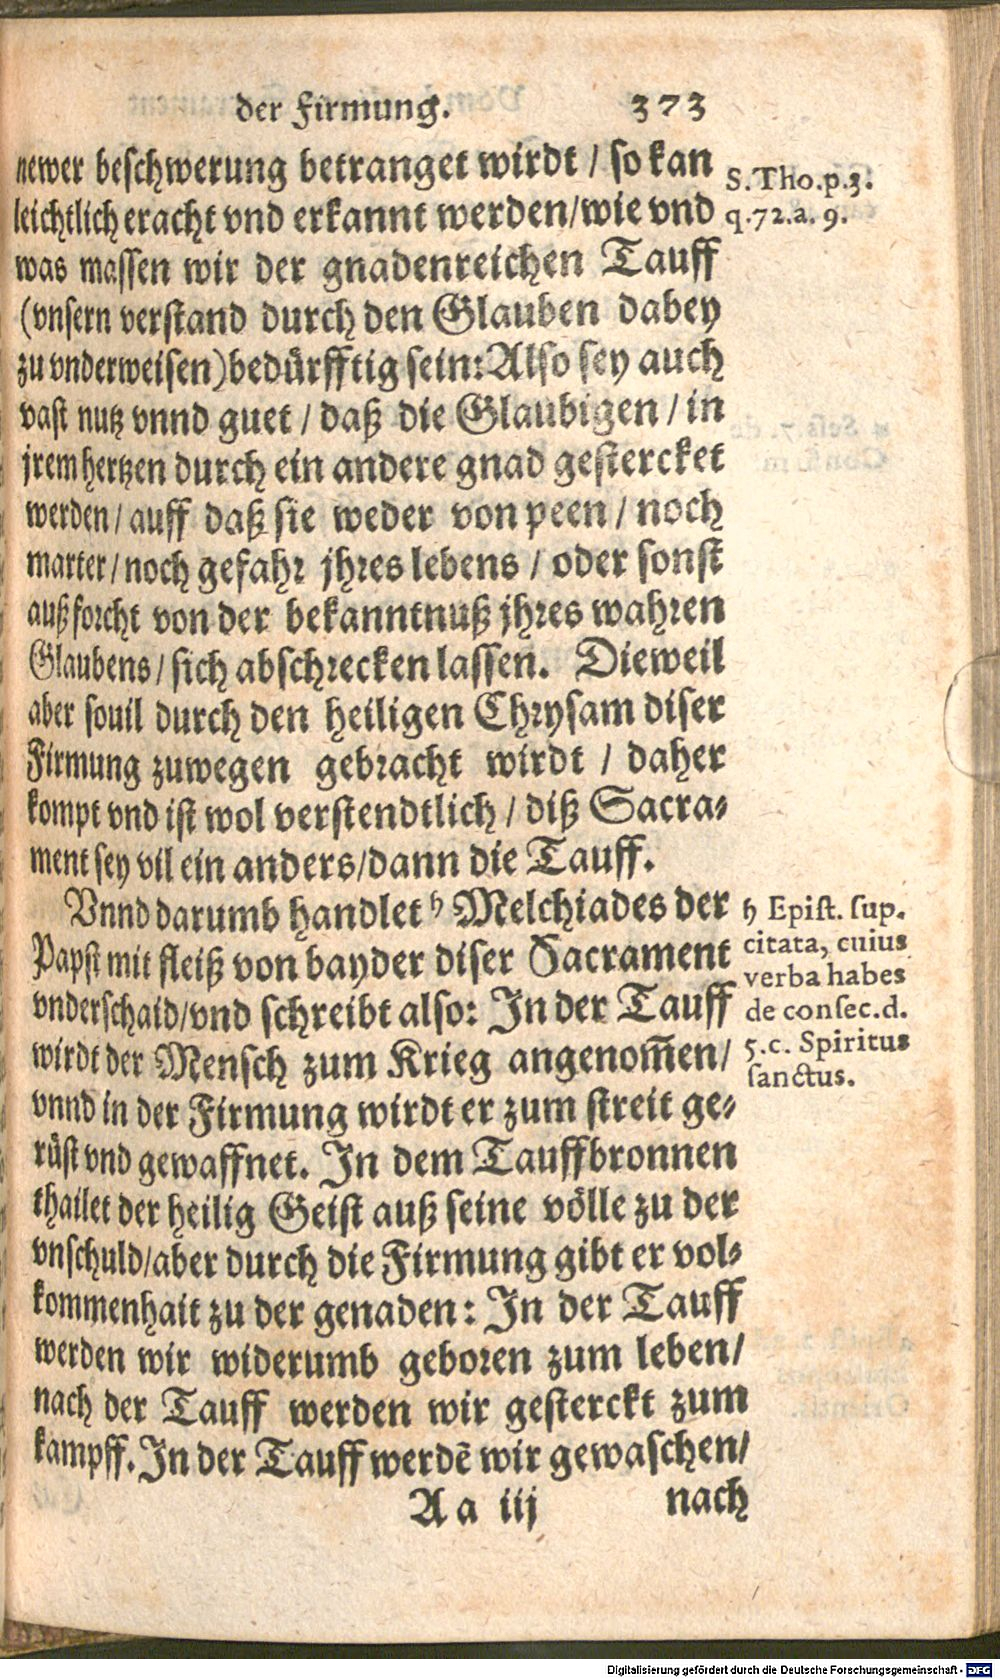 der Firmung. 373
newer beschwerung betranget wirdt / so kan
leichtlich eracht vnd erkannt werden/wie vnd
was massen wir der gnadenreichen Tauff
(vnsern verstand durch den Glauben dabey
zu vnderweisen)bedürfftig sein: Also sey auch
vast nutz vnnd guet / daß die Glaubigen / in
jrem hertzen durch ein andere gnad gestercket
werden / auff daß sie weder von peen / noch
marter / noch gefahr jhres lebens / oder sonst
auß forcht von der bekanntnuß jhres wahren
Glaubens / sich abschrecken lassen. Dieweil
aber souil durch den heiligen Chrysam diser
Firmung zuwegen gebracht wirdt / daher
kompt vnd ist wol verstendtlich / diß Sacra-
ment sey vil ein anders/dann die Tauff.
Vnnd darumb handlet h Melchiades der
Papst mit fleiß von bayder diser Sacrament
vnderschaid/vnd schreibt also: In der Tauff
wirdt der Mensch zum Krieg angenom̃en/
vnnd in der Firmung wirdt er zum streit ge-
rüst vnd gewaffnet. In dem Tauffbronnen
thailet der heilig Geist auß seine völle zu der
vnschuld/aber durch die Firmung gibt er vol-
kommenhait zu der genaden: In der Tauff
werden wir widerumb geboren zum leben/
nach der Tauff werden wir gesterckt zum
kampff. In der Tauff werdẽ wir gewaschen/
A a iij nach
S. Tho. p. 3.
q. 72. a. 9.
h Epist. sup.
citata, cuius
verba habes
de consec. d.
5. c. Spiritus
sanctus.
Digitalisierung gefördert durch die Deutsche Forschungsgemeinschaft - DFG